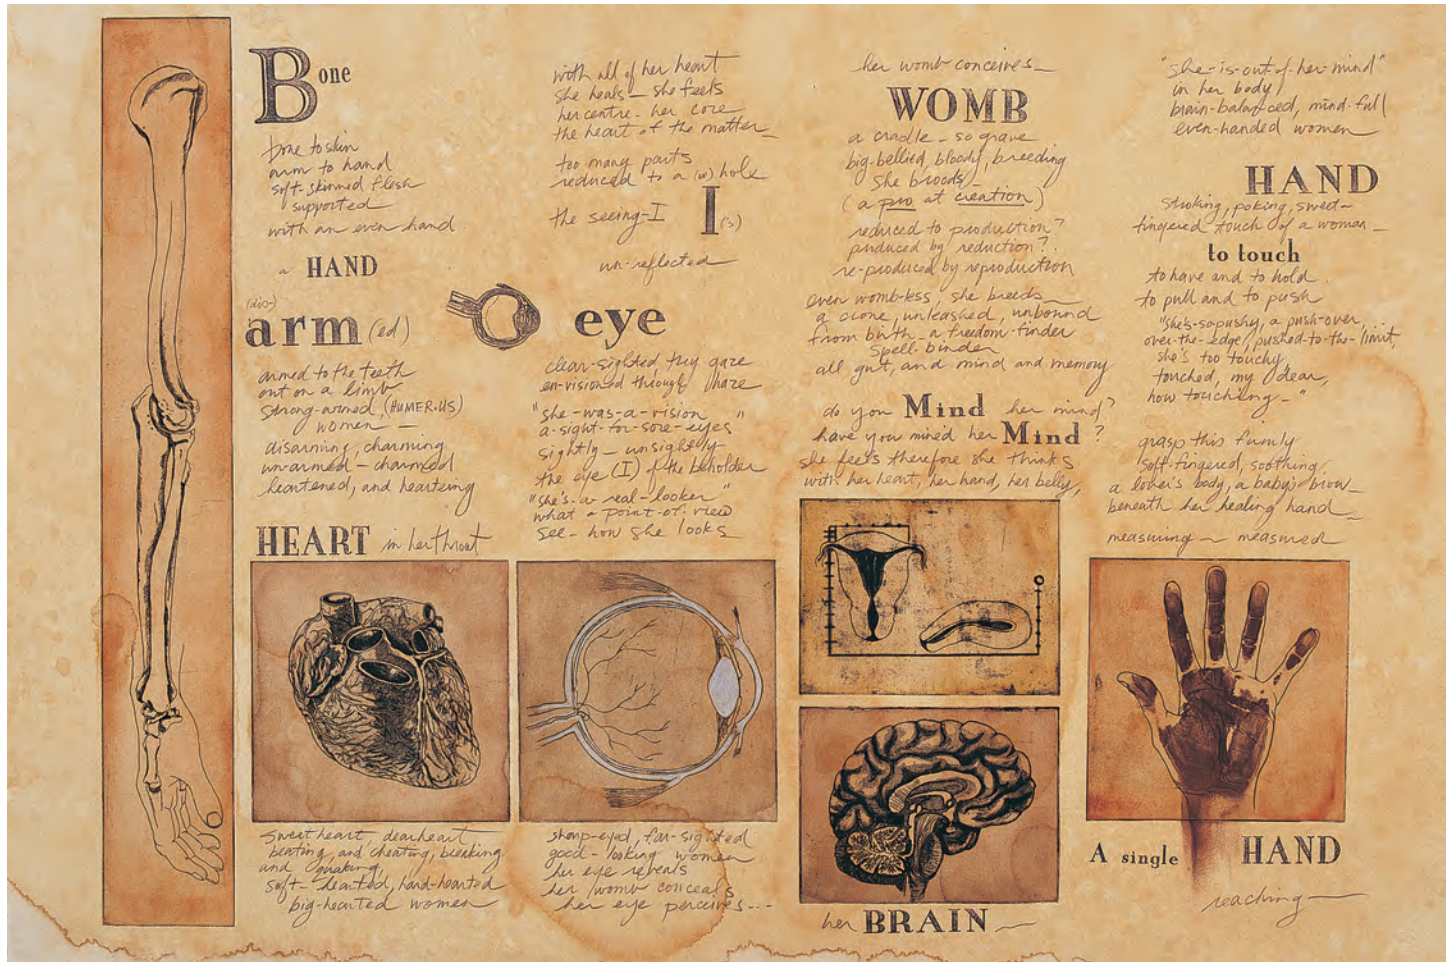 Bone
bone to skin
arm to hand
soft-skinned flesh
supported
with an even hand
a HAND
(dis-)
arm (ed)
armed to the teeth
out on a limb
strong-armed, (HUMER-US)
women —
disarming, charming
un-armed — charmed
heartened, and heartening
HEART in her throat
sweetheart, dearheart
beating, and cheating, breaking
and quaking,
soft-hearted, hard-hearted
big-hearted women
with all of her heart
she heals — she feels
her centre - her core
the heart of the matter —
too many parts
reduced to a (w)hole
the seeing-I I (s)
un-reflected
eye
clear-sighted, they gaze
en-visioned through haze
"she-was-a-vision
a-sight-for-sore-eyes"
sightly — unsightly
the eye (I) of the beholder
"she's-a-real-looker"
what a point-of-view
see - how she looks
sharp-eyed, far-sighted
good-looking women
her eye reveals
her womb conceals
her eye perceives...
her womb conceives —
WOMB
a cradle - so grave
big-bellied, bloody, breeding
she broods —
(a pro at creation)
reduced to production?
produced by reduction?
re-produced by reproduction
even womb-less, she breeds —
a crone, unleashed, unbound
from birth — a freedom-finder
spell-binder
all gut, and mind and memory
do you Mind her mind?
have you mined her Mind?
she feels therefore she thinks
with her heart, her hand, her belly,
her BRAIN —
"she-is-out-of-her-mind"
in her body
brain-balanced, mind-full
even-handed women
HAND
stroking, poking, sweet-
fingered touch of a woman —
to touch
to have and to hold
to pull and to push
"she's-so-pushy, a push-over,
over-the-edge, pushed-to-the-limit,
she's too touchy,
touched, my dear,
how touching - "
grasp this firmly
soft-fingered, soothing
a lover's body, a baby's brow —
beneath her healing hand —
measuring — measured
A single HAND
reaching —